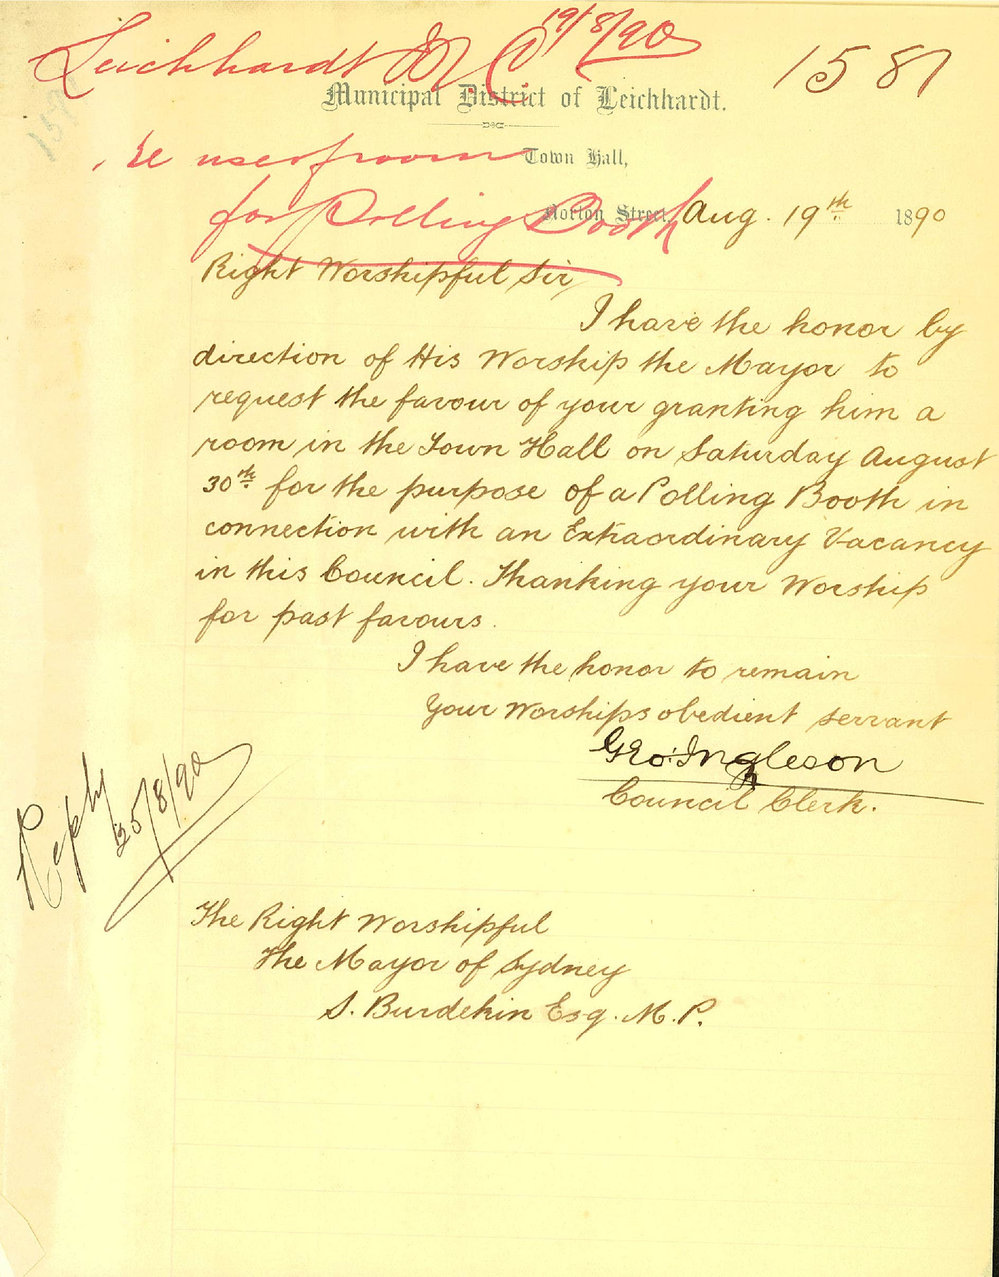 Leichhardt M. C. 19/8/90
1581
Municipal District of Leichhardt.
re use of room
Town Hall,
for Polling Booth
Norton Street, Aug. 19th 1890
Right Worshipful Sir,
I have the honor by
direction of His Worship the Mayor to
request the favour of your granting him a
room in the Town Hall on Saturday August
30th for the purpose of a Polling Booth in
connection with an Extraordinary Vacancy
in this Council. Thanking your Worship
for past favours.
I have the honor to remain
Your Worships obedient servant
Geo: Ingleson
Council Clerk.
Reply
25/8/90
The Right Worshipful
The Mayor of Sydney
S. Burdekin Esq. M. P.